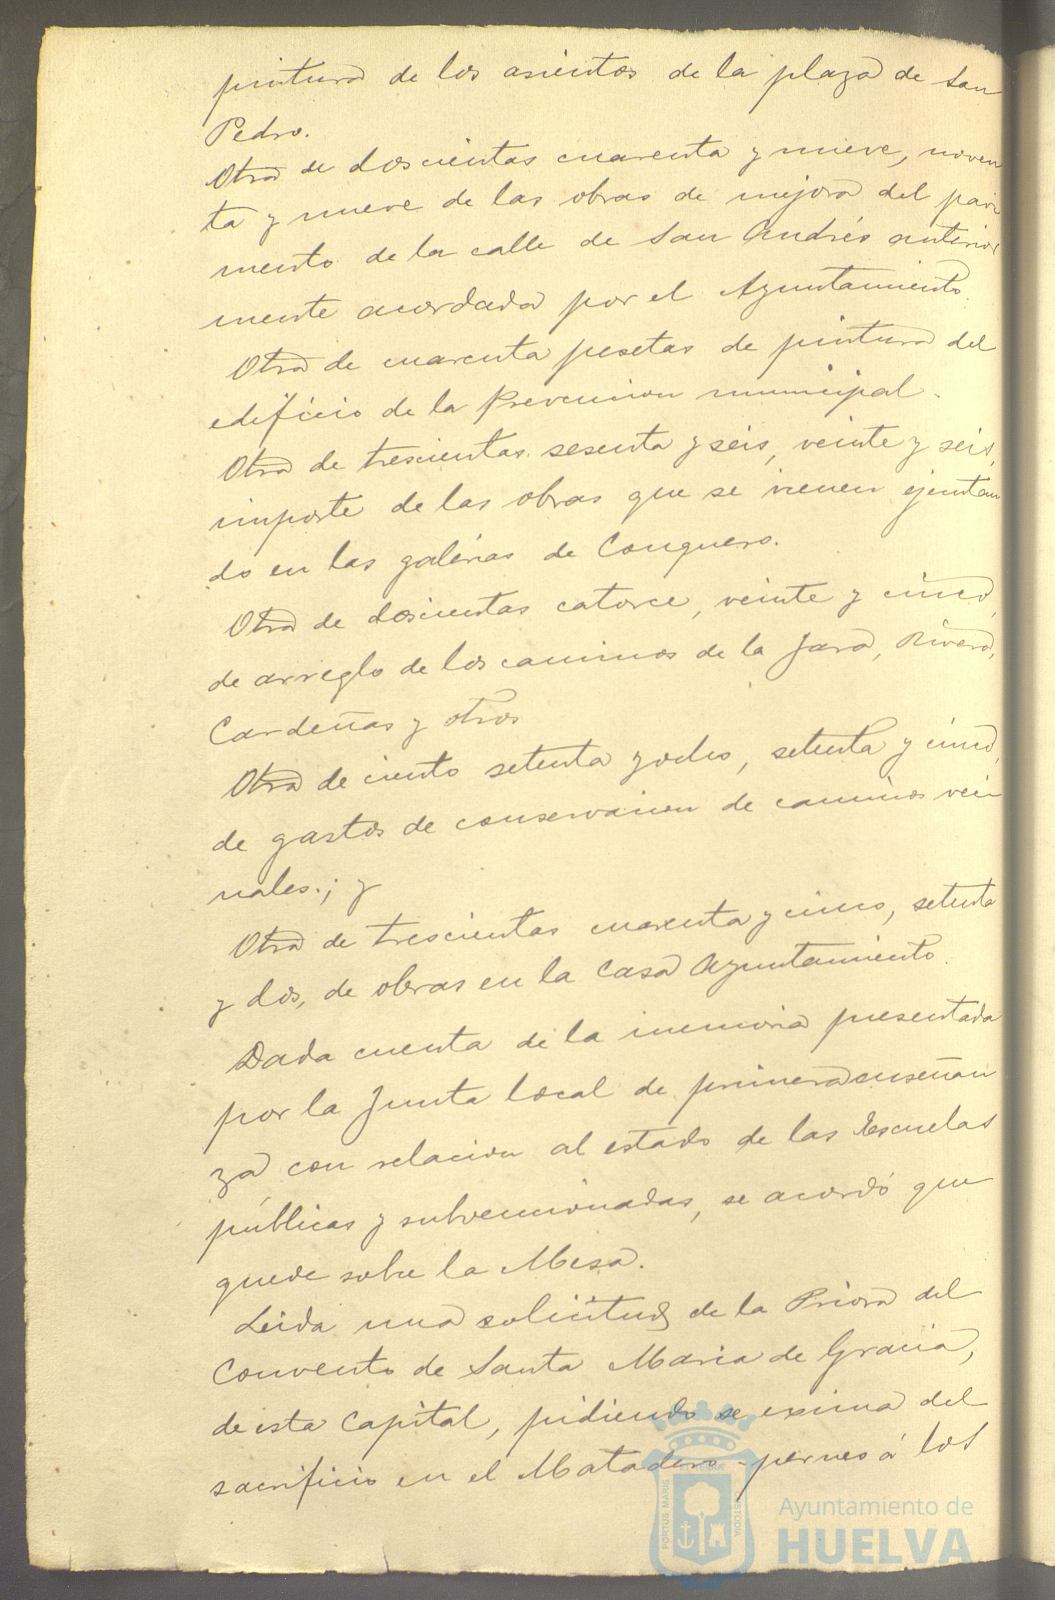 pintura de los asientos de la plaza de San
Pedro.
Otra de doscientas cuarenta y nueve, noven
ta y nueve de las obras de mejora del pavi
mento de la calle de San Andrés anterior
mente acordada por el Ayuntamiento.
Otra de cuarenta pesetas de pintura del
edificio de la Prevencion municipal.
Otra de trescientas sesenta y seis, veinte y seis,
importe de las obras que se vienen ejecutan
do en las galerias de Conquero.
Otra de doscientas catorce, veinte y cinco,
de arreglo de los caminos de la Jara, Rivera,
Cardeñas y otros
Otra de ciento setenta y ocho, setenta y cinco,
de gastos de conservacion de caminos veci
nales.; y
Otra de trescientas cuarenta y cinco, setenta
y dos, de obras en la Casa Ayuntamiento.
Dada cuenta de la memoria presentada
por la Junta local de primera enseñan
za con relacion al estado de las Escuelas
públicas y subvencionadas, se acordó que
quede sobre la Mesa.
Leida una solicitud de la Priora del
Convento de Santa Maria de Gracia,
de esta Capital, pidiendo se exima del
sacrificio en el Matadero á los
PORTUS MARIS
CUSTODIA
Ayuntamiento de
HUELVA